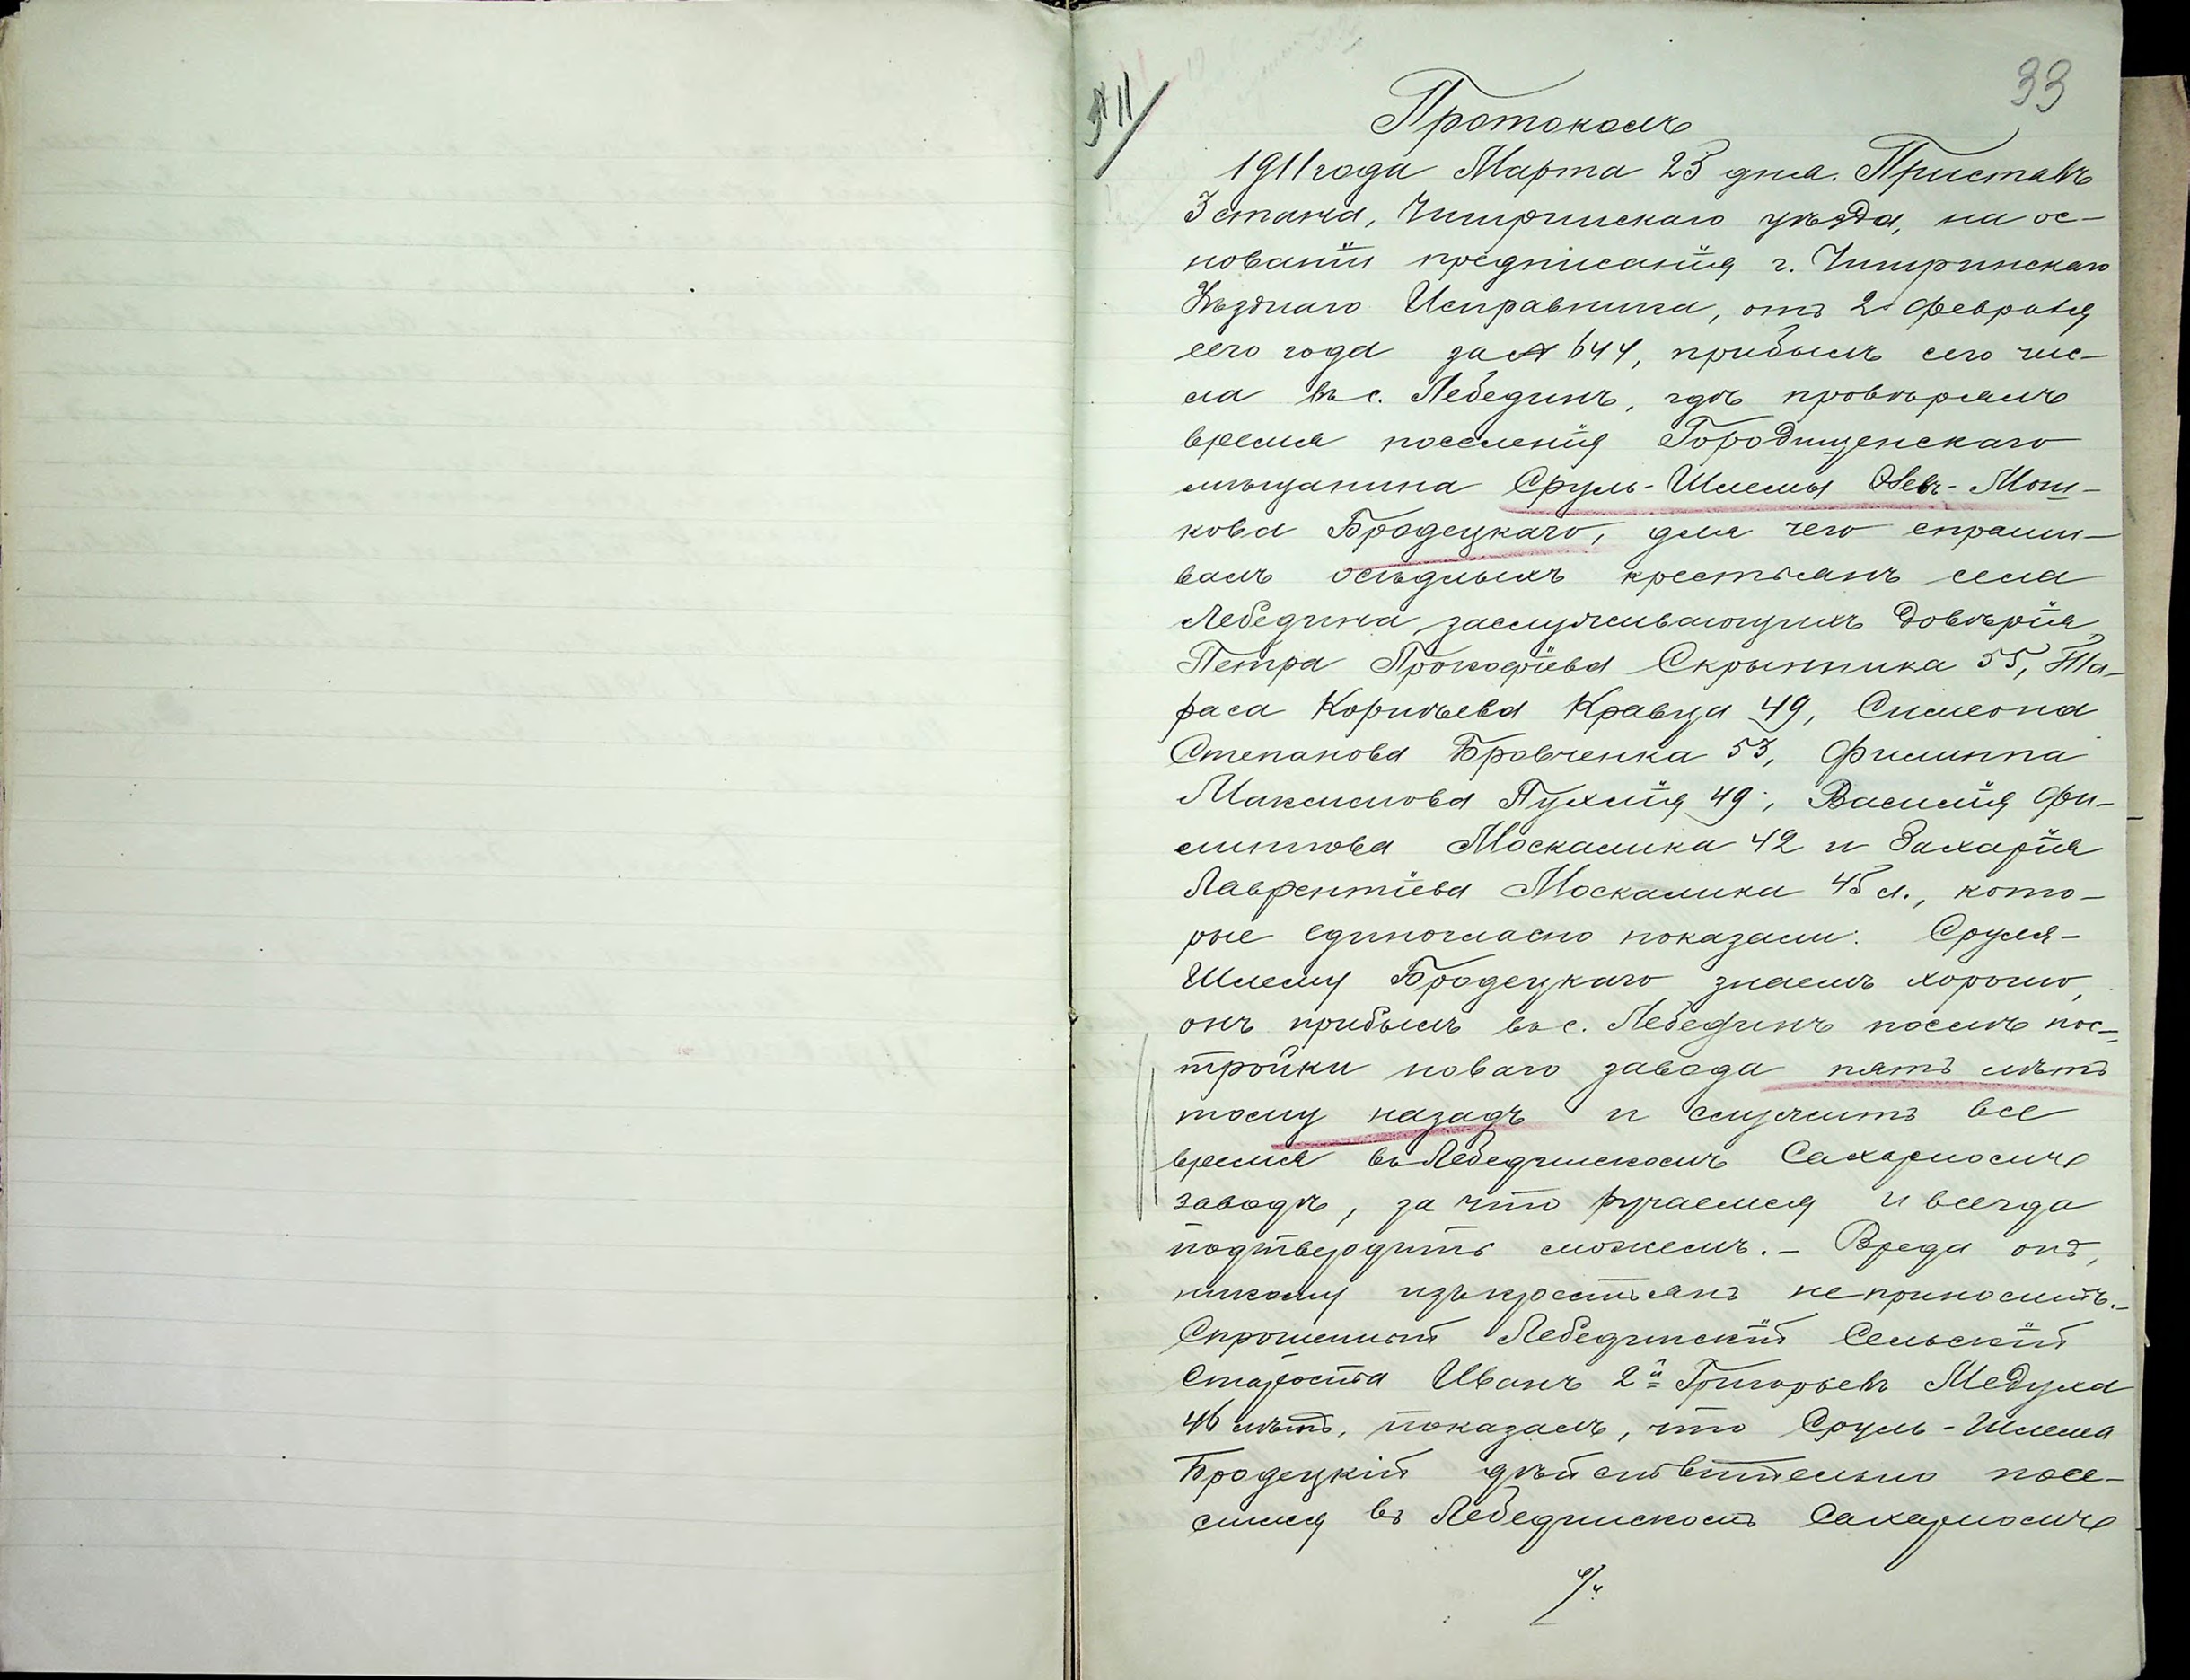 33
№ 11
Протоколъ
1911 года Марта 23 дня. Приставъ
3 стана, Чигиринскаго уѣзда, на ос-
нованіи предписанія г. Чигиринскаго
Уѣзднаго Исправника, отъ 2 февраля
сего года за № 644, прибылъ сего чис-
ла въ с. Лебединъ, гдѣ провѣрялъ
время поселенія Городищенскаго
мѣщанина Сруль-Шлемы Невъ-Мош-
кова Бродецкаго, для чего спраши-
валъ осѣдлыхъ крестьянъ села
Лебедина заслуживающихъ довѣрія,
Петра Прокофіева Скрынника 55, Та-
раса Корнѣева Кравца 49, Симеона
Степанова Бровченка 53, Филиппа
Максимова Пухлія 49, Василія Фи-
липпова Москалика 42 и Захарія
Лаврентіева Москалика 45 л., кото-
рые единогласно показали: Сруля-
Шлему Бродецкаго знаемъ хорошо,
онъ прибылъ въ с. Лебединъ послѣ пос-
тройки новаго завода пять лѣтъ
тому назадъ и служитъ все
время въ Лебединскомъ Сахарномъ
заводѣ, за что ручаемся и всегда
подтвердить можемъ. – Вреда онъ,
никому изъ крестьянъ не приноситъ. –
Спрошенный Лебединскій Сельскій
Староста Иванъ 2й Григорьевъ Медуха
46 лѣтъ, показалъ, что Сруль-Шлема
Бродецкій дѣйствительно посе-
лился въ Лебединскомъ Сахарномъ